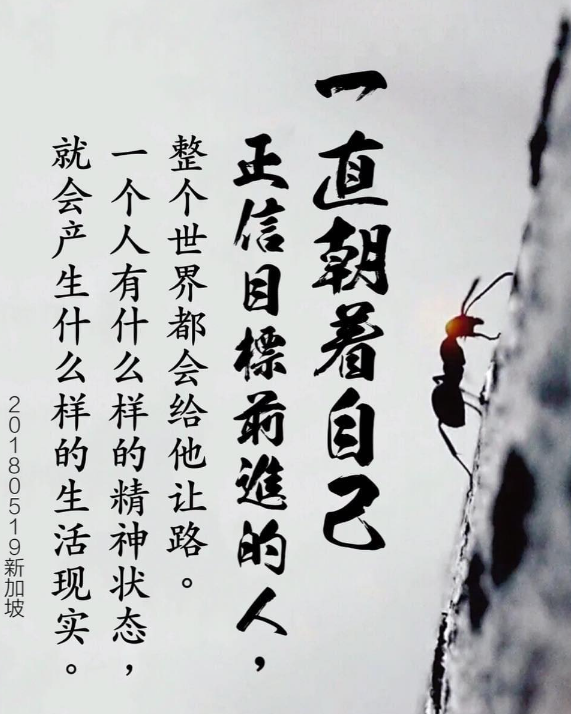 一直朝着自己
正信目標前進的人，
整个世界都会给他让路。
一个人有什么样的精神状态，
就会产生什么样的生活现实。
20180519新加坡